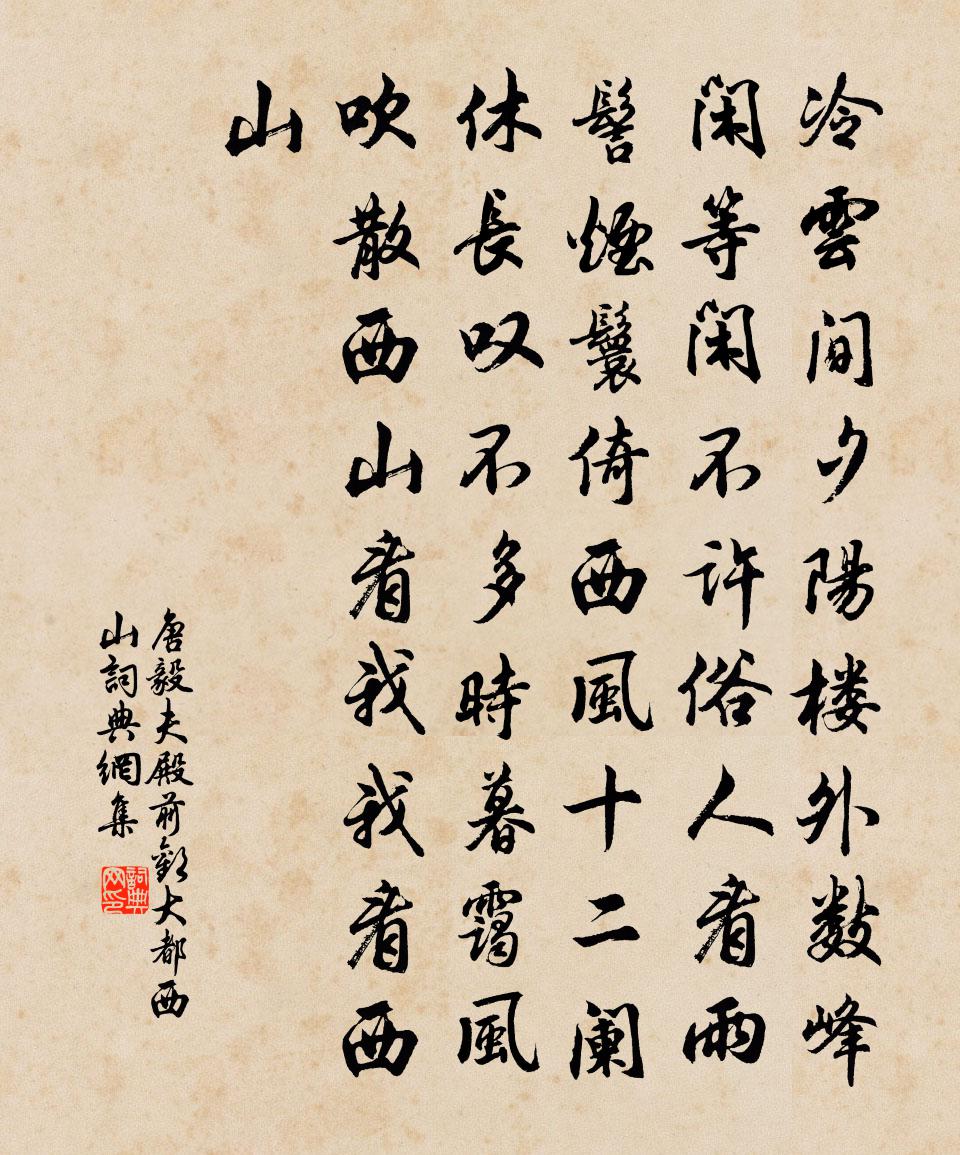 冷雲間夕陽楼外数峰
闲等闲不許俗人看雨
髻煙鬟倚西風十二阑
休長叹不多時暮靄風
吹散西山看我我看西
山
唐毅夫殿前歡大都西
山詞典網集
詞典网印